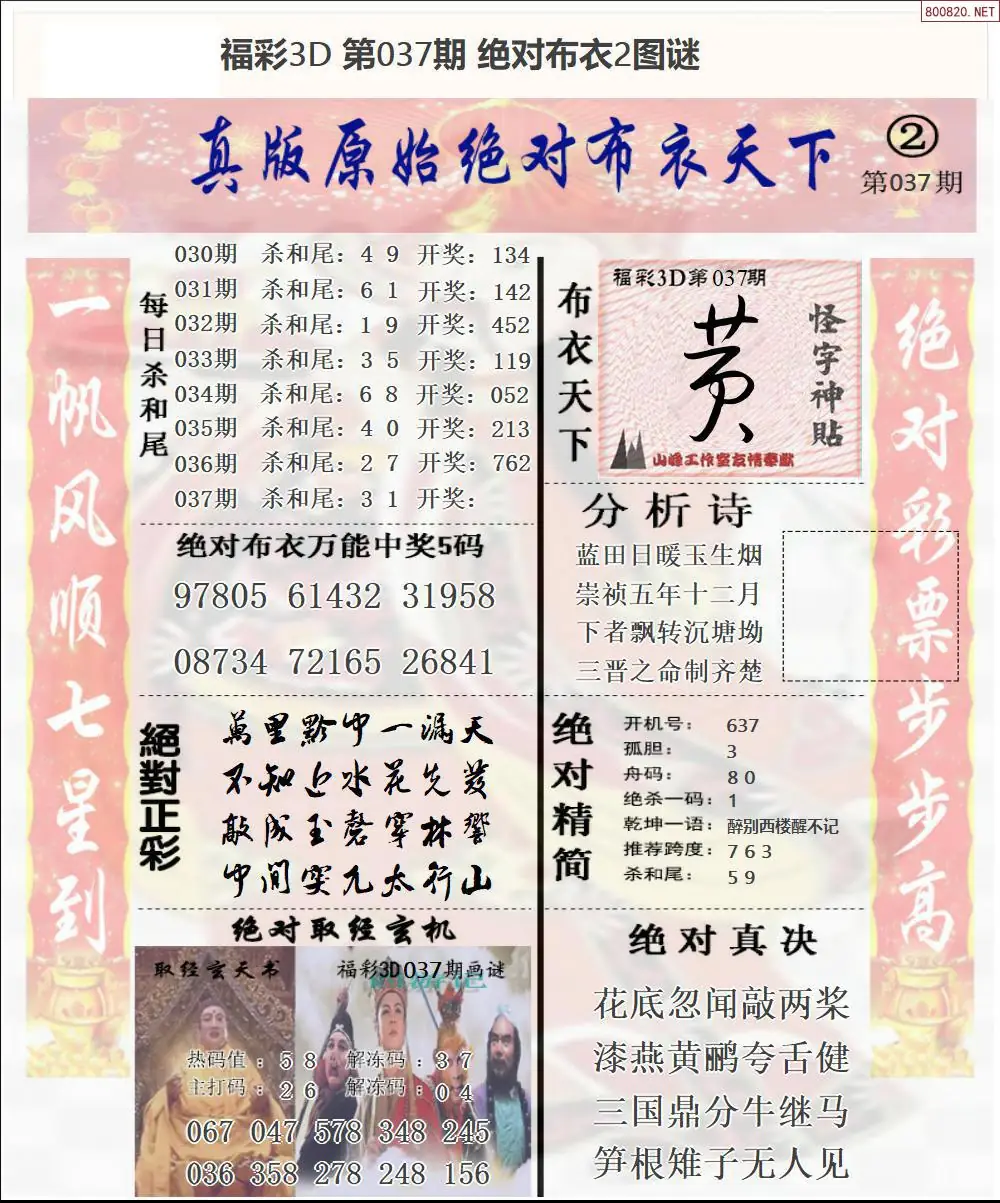 800820.NET
福彩3D 第037期 绝对布衣2图谜
真版原始绝对布衣天下
②
第037期
一帆风顺七星到
每日杀和尾
030期 杀和尾：4 9 开奖：134
031期 杀和尾：6 1 开奖：142
032期 杀和尾：1 9 开奖：452
033期 杀和尾：3 5 开奖：119
034期 杀和尾：6 8 开奖：052
035期 杀和尾：4 0 开奖：213
036期 杀和尾：2 7 开奖：762
037期 杀和尾：3 1 开奖：
绝对布衣万能中奖5码
97805 61432 31958
08734 72165 26841
絕對正彩
萬里黔中一漏天
不知近水花先發
敲成玉磬穿林響
中間突兀太行山
绝对取经玄机
取经玄天书
福彩3D037期画谜
热码值：5 8 解冻码：3 7
主打码：2 6 解冻码：0 4
067 047 578 348 245
036 358 278 248 156
布衣天下
福彩3D第037期
黄
怪字神貼
山峰工作室友情奉献
分析诗
蓝田日暖玉生烟
崇祯五年十二月
下者飘转沉塘坳
三晋之命制齐楚
绝对精简
开机号：637
孤胆：3
舟码：8 0
绝杀一码：1
乾坤一语：醉别西楼醒不记
推荐跨度：7 6 3
杀和尾：5 9
绝对真决
花底忽闻敲两桨
漆燕黄鹂夸舌健
三国鼎分牛继马
笋根雉子无人见
绝对彩票步步高